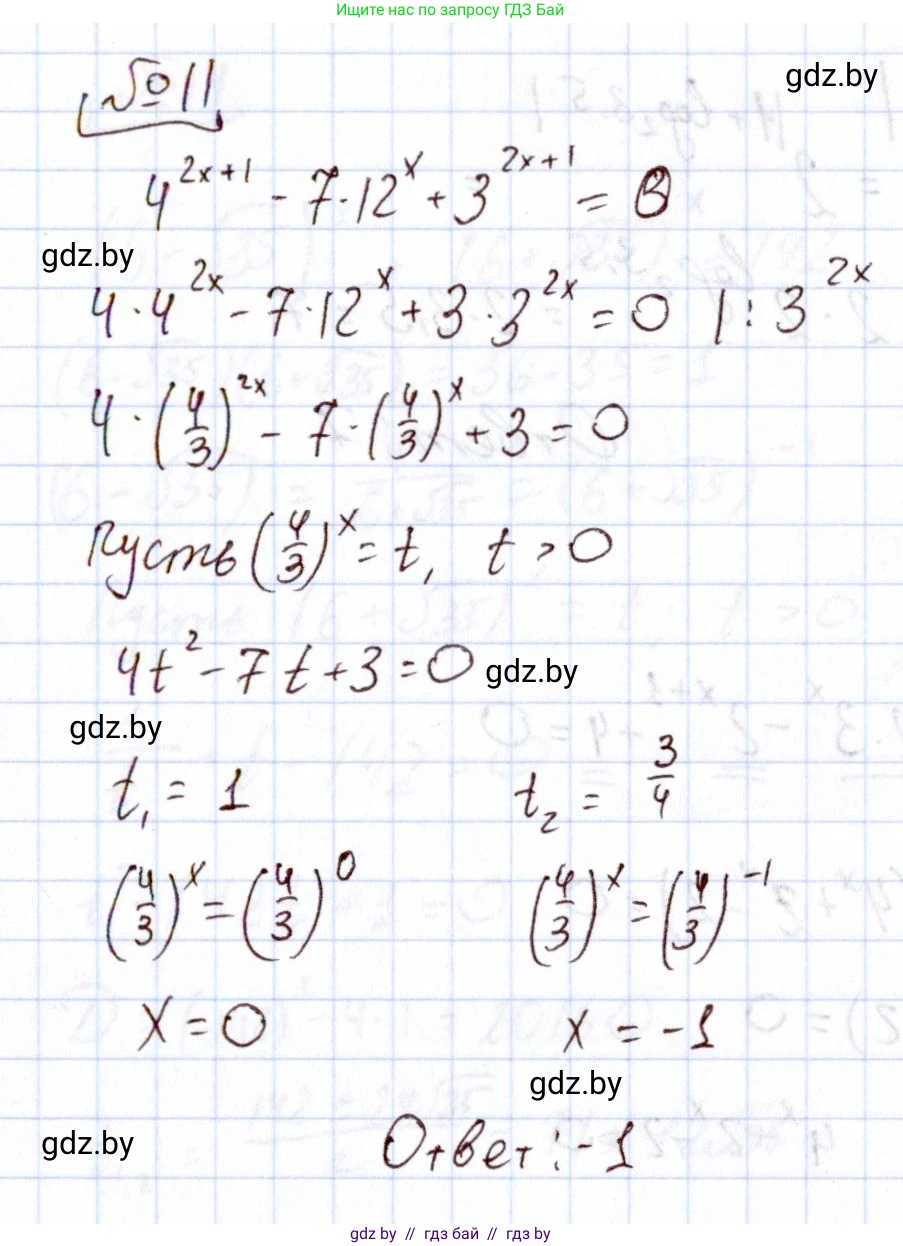 Ищите нас по запросу ГДЗ Бай
gdz.by
№11
4^(2x+1) - 7·12^x + 3^(2x+1) = 0
gdz.by
4·4^(2x) - 7·12^x + 3·3^(2x) = 0 |: 3^(2x)
4·(4/3)^(2x) - 7·(4/3)^x + 3 = 0
Пусть (4/3)^x = t, t > 0
4t² - 7t + 3 = 0 gdz.by
gdz.by
t₁ = 1 t₂ = 3/4
(4/3)^x = (4/3)^0 (4/3)^x = (4/3)^(-1)
x = 0 x = -1
gdz.by
gdz.by Ответ: -1
gdz.by // гдз бай // гдз by